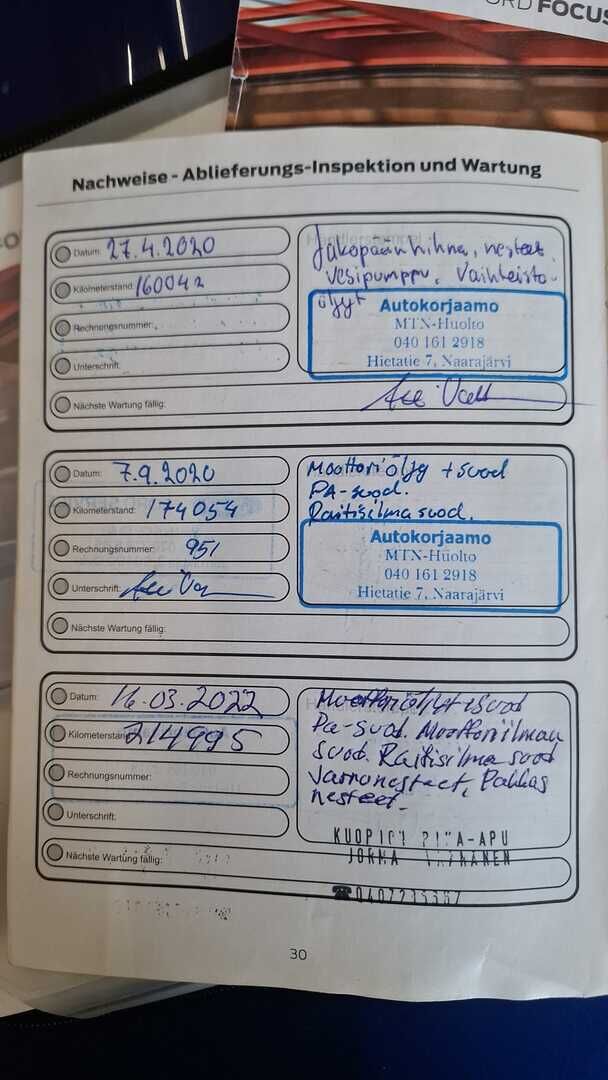 FOCUS
Nachweise - Ablieferungs-Inspektion und Wartung
Datum: 27.4.2020
Kilometerstand: 160042
Rechnungsnummer:
Unterschrift:
Nächste Wartung fällig:
Jakopäänhihna, nesteet,
vesipumppu, Vaihteisto-
öljyt
Autokorjaamo
MTN-Huolto
040 161 2918
Hietatie 7, Naarajärvi
Datum: 7.9.2020
Kilometerstand: 174054
Rechnungsnummer: 951
Unterschrift:
Nächste Wartung fällig:
Moottoriöljy + suod
PA-suod.
Raitisilma suod.
Autokorjaamo
MTN-Huolto
040 161 2918
Hietatie 7, Naarajärvi
Datum: 16.03.2022
Kilometerstand 214995
Rechnungsnummer:
Unterschrift:
Nächste Wartung fällig:
Moottoriöljyt + suod
Pa-suod. Moottoriilman
suod. Raitisilma suod
Jarrunesteet, Pakkas
nesteet.
KUOPION APU
JORMA
30